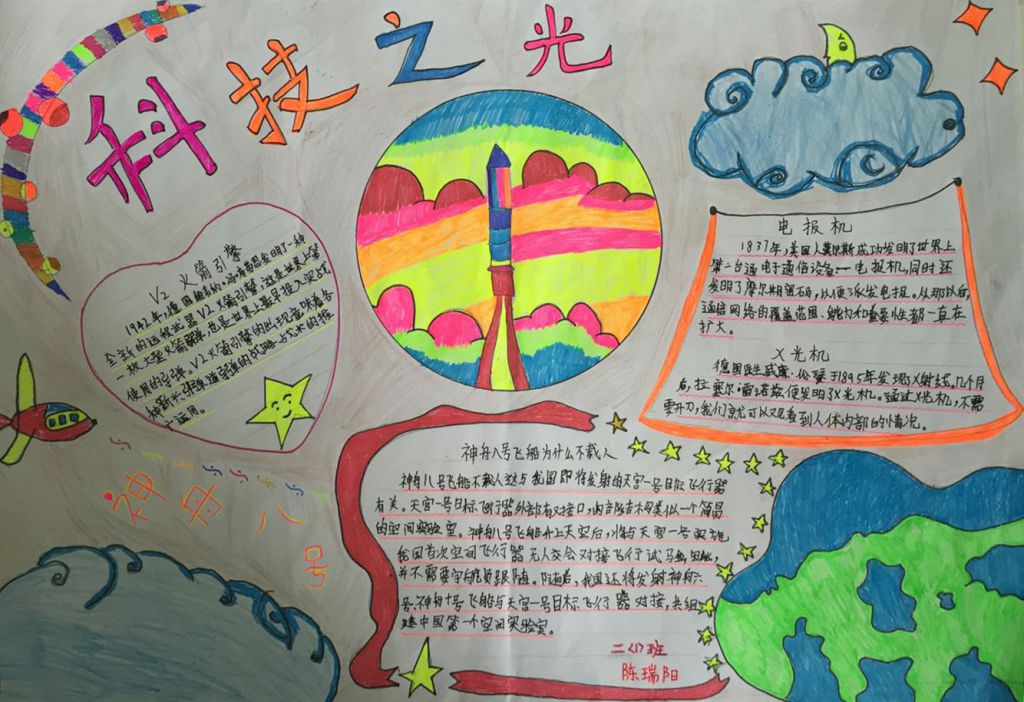 科技之光
V2 火箭引擎
1942年,德国
发明了一种
全新的远程武器V2火箭引擎,这是世界上第
一枚大型火箭弹,也是世界上最早投入实战
使用的导弹。V2火箭引擎的出现意味着各
种新
运用。
神舟八号
电报机
1837年,美国人莫尔斯成功发明了世界上
第一台通电子通信设备——电报机,同时还
发明了摩尔斯密码,以便派发电报。从那以后,
通信网络的覆盖范围、能力和重要性都一直在
扩大。
X光机
德国医生威廉·伦琴于1895年发现X射线,几个月
后,拉塞尔·雷诺兹便发明了X光机。通过X光机,不需
要开刀,我们就可以观看到人体内部的情况。
神舟八号飞船为什么不载人
神舟八号飞船不载人这与我国即将发射的天宫一号目标飞行器
有关。天宫一号目标飞行器外部有对接口,内部结构类似一个简易
的空间实验室。神舟八号飞船升上天空后,将与天宫一号实施
我国首次空间飞行器无人交会对接飞行试验,因此,
并不需要宇航员跟随。随后,我国还将发射神舟九
号、神舟十号飞船与天宫一号目标飞行器对接,共组
建中国第一个空间实验室。
二〈1〉班
陈瑞阳